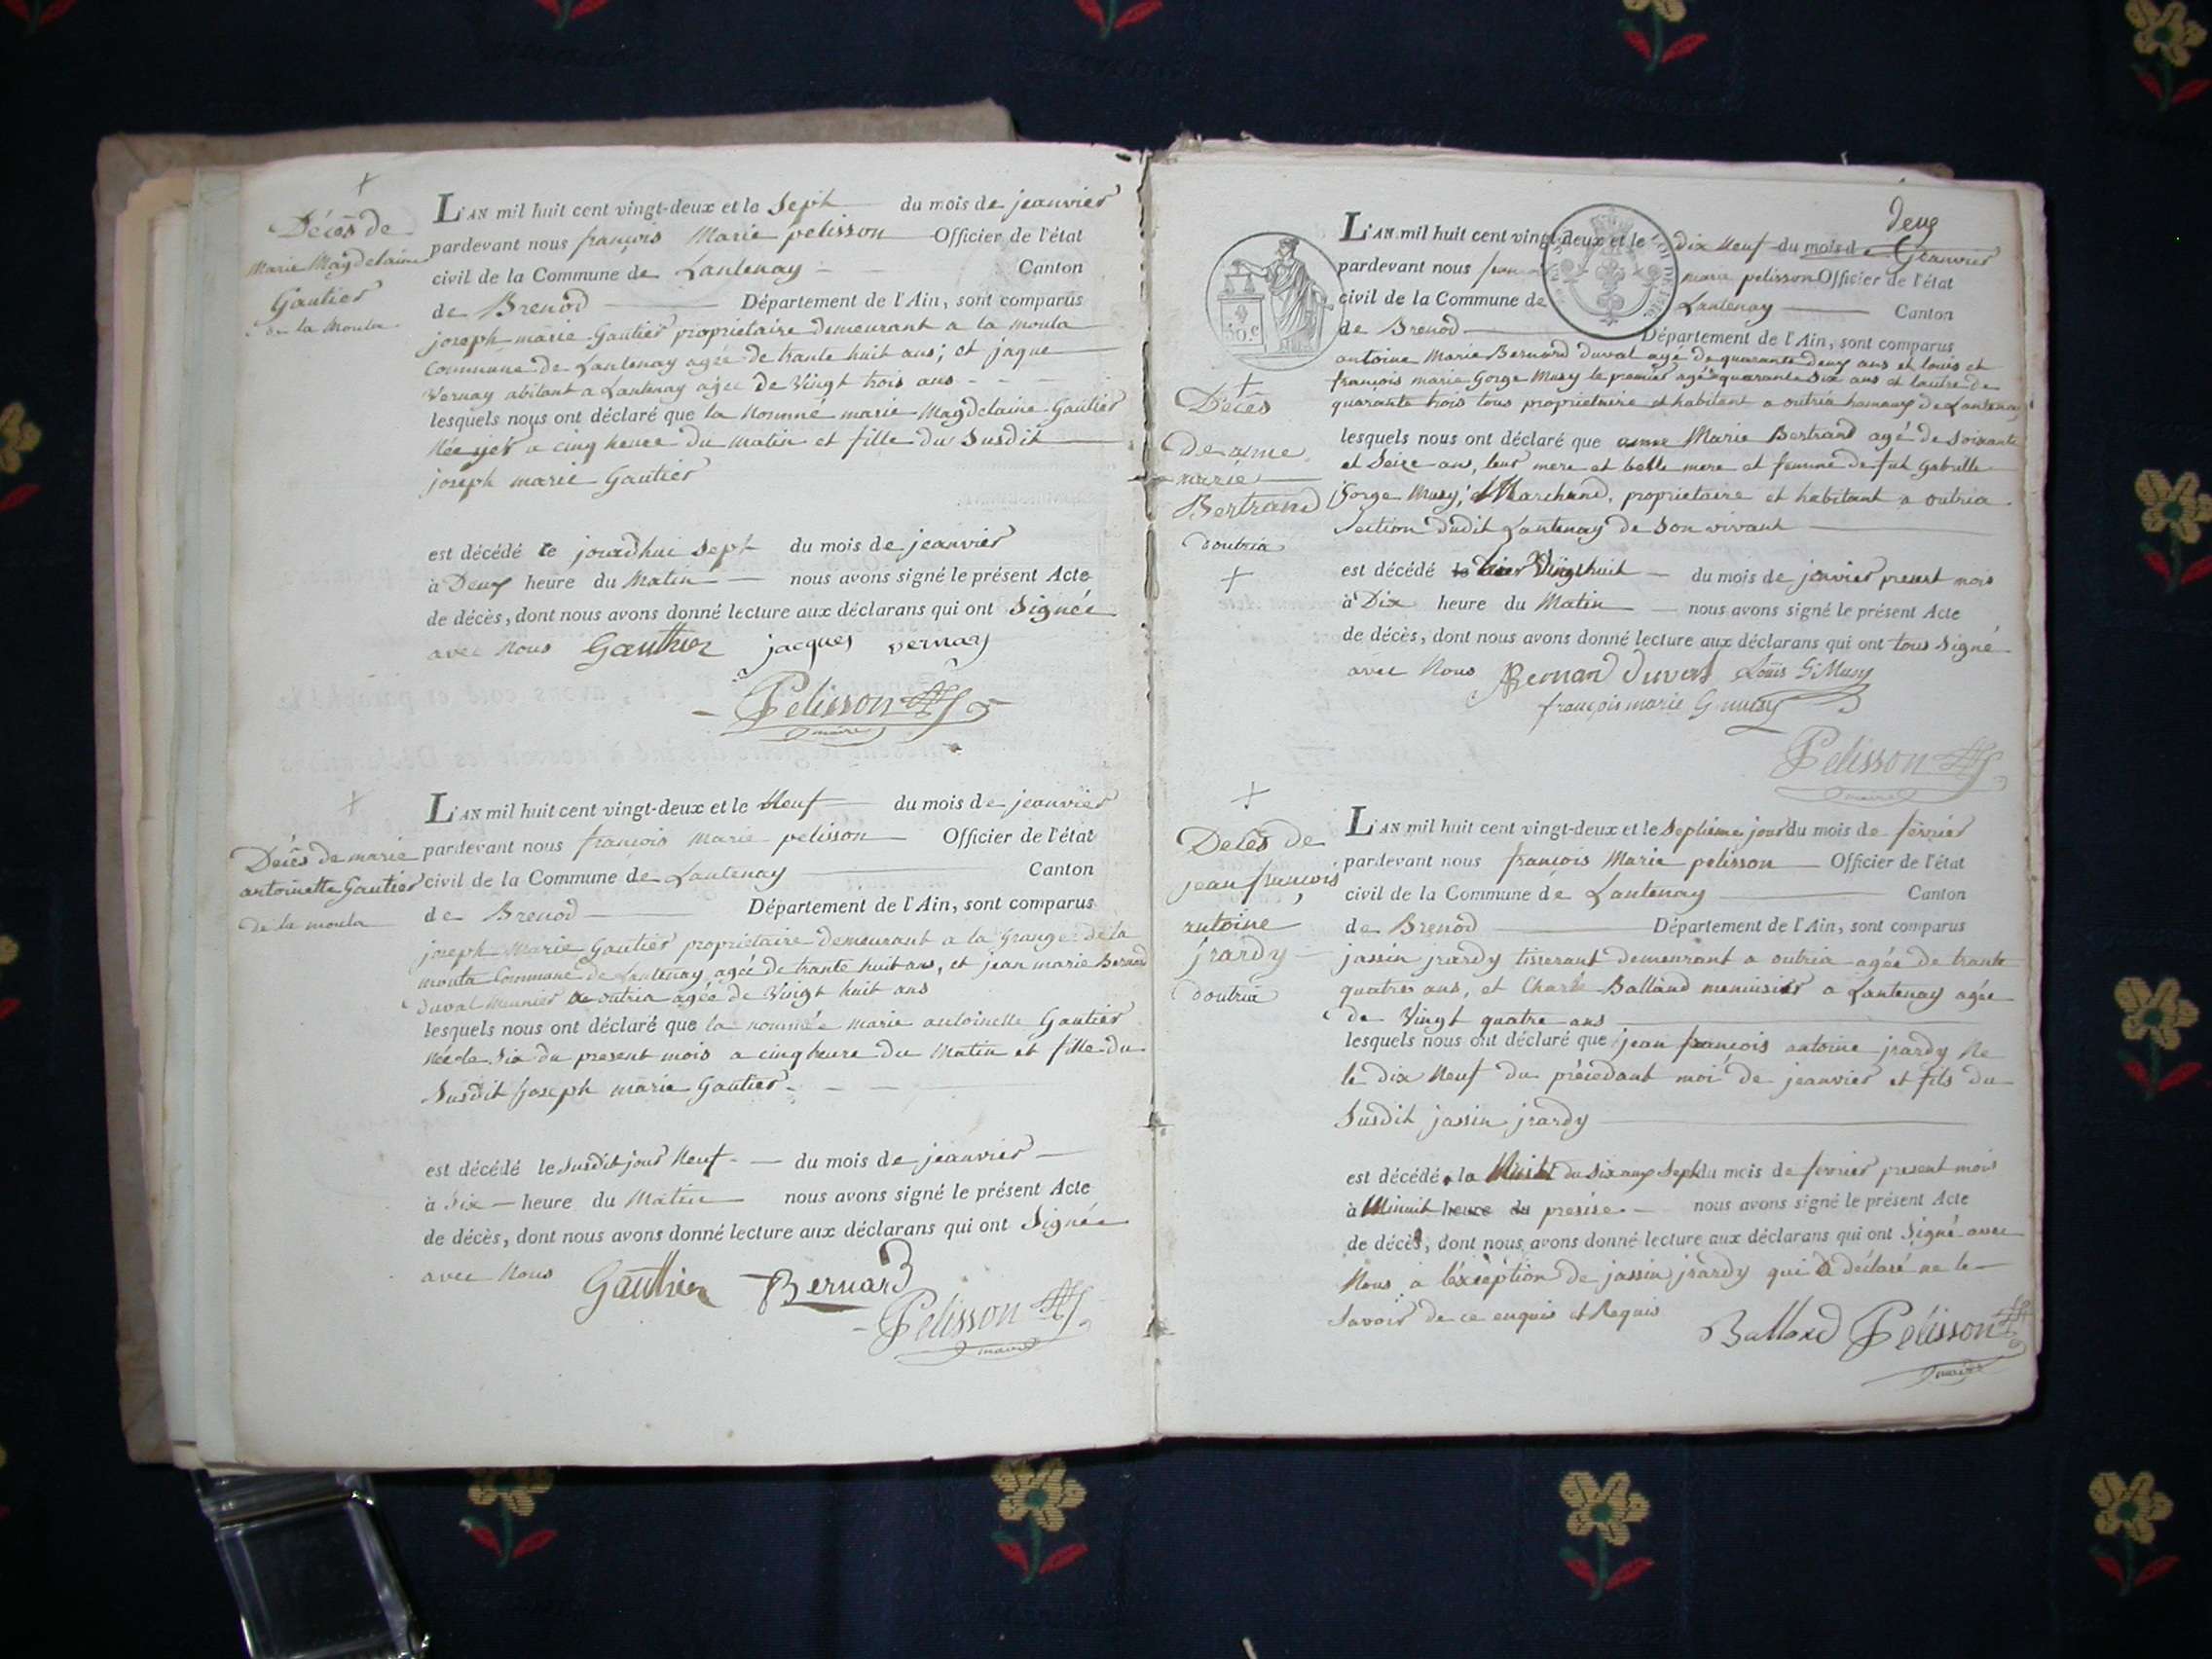 Décès de
Marie Magdelaine
Gautier
de la Moula
L'AN mil huit cent vingt-deux et le Sept du mois de jeanvier
pardevant nous françois Marie pelisson Officier de l'état
civil de la Commune de Lantenay Canton
de Brenod Département de l'Ain, sont comparus
joseph marie Gautier propriétaire demeurant a la moula
Commune de Lantenay agée de trante huit ans; et jaque
Vernay abitant a Lantenay agée de Vingt trois ans
lesquels nous ont déclaré que la Nommé marie Magdelaine Gautier
Née yer a cinq heure du matin et fille du Susdit
joseph marie Gautier
est décédé le jourdhui Sept du mois de jeanvier
à Deux heure du Matin nous avons signé le présent Acte
de décès, dont nous avons donné lecture aux déclarans qui ont Signée
avec Nous Gauthier jacques vernay
Pelisson
maire
Décès de marie
antoinette Gautier
de la moula
L'AN mil huit cent vingt-deux et le Neuf du mois de jeanvier
pardevant nous françois Marie pelisson Officier de l'état
civil de la Commune de Lantenay Canton
de Brenod Département de l'Ain, sont comparus
joseph Marie Gautier propriétaire demeurant a la Grange de la
moula Commune de Lantenay agée de trante huit ans, et jean marie Bernard
duval meunier de outria agée de Vingt huit ans
lesquels nous ont déclaré que la nommée marie antoinette Gautier
Née le Six du present mois a cinq heure du Matin et fille du
Susdit joseph marie Gautier
est décédé le Susdit jour Neuf du mois de jeanvier
à Six heure du Matin nous avons signé le présent Acte
de décès, dont nous avons donné lecture aux déclarans qui ont Signée
avec Nous Gauthier Bernard
Pelisson
maire
deux
50 c
Décès
de anne
marie
Bertrand
doutria
L'AN mil huit cent vingt-deux et le dix Neuf du mois de Jeanvier
pardevant nous marie pelisson Officier de l'état
civil de la Commune de Lantenay Canton
de Brenod Département de l'Ain, sont comparus
antoine Marie Bernard duval agé de quarante deux ans et louis et
françois marie Gorge Musy le premier agé quarante Six ans et lautre de
quarante trois tous propriétaire et habitant a outria hameaux de Lantenay
lesquels nous ont déclaré que anne Marie Bertrand agé de Soixante
et Seize ans, leur mere et belle mere et femme de fut Gabrielle
Gorge Musy, Marchand, propriétaire et habitant a outria
Section dudit Lantenay de Son vivant
est décédé le du mois de janvier present mois
à Dix heure du Matin nous avons signé le présent Acte
de décès, dont nous avons donné lecture aux déclarans qui ont tous Signé
avec Nous Bernard Duval Louis G Musy
françois marie G musy
Pelisson
maire
Décès de
jean françois
antoine
jrardy
doutria
L'AN mil huit cent vingt-deux et le Septième jour du mois de février
pardevant nous françois Marie pelisson Officier de l'état
civil de la Commune de Lantenay Canton
de Brenod Département de l'Ain, sont comparus
jassin jrardy tisserant demeurant a outria agée de trante
quatre ans, et Charle Balland menuisier a Lantenay agée
de Vingt quatre ans
lesquels nous ont déclaré que jean françois antoine jrardy Ne
le dix Neuf du précédant moi de jeanvier et fils du
Susdit jassin jrardy
est décédé la Nuit du Six aux Sept du mois de fevrier present mois
à Minuit heure du presise nous avons signé le présent Acte
de décès, dont nous avons donné lecture aux déclarans qui ont Signé avec
Nous a lexception de jassin jrardy qui a déclaré ne le
Savoir de ce enquis et Requis Balland Pelisson
maire